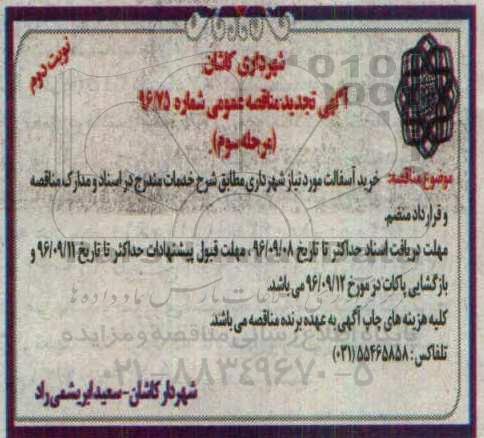 نوبت دوم
شهرداری کاشان
آگهی تجدید مناقصه عمومی شماره ۹۶/۷۵
(مرحله سوم)
موضوع مناقصه: خرید آسفالت مورد نیاز شهرداری مطابق شرح خدمات مندرج در اسناد و مدارک مناقصه
و قرارداد منضم.
مهلت دریافت اسناد حداکثر تا تاریخ ۹۶/۰۹/۰۸ ، مهلت قبول پیشنهادات حداکثر تا تاریخ ۹۶/۰۹/۱۱ و
بازگشایی پاکات در مورخ ۹۶/۰۹/۱۲ می باشد.
کلیه هزینه های چاپ آگهی به عهده برنده مناقصه می باشد.
تلفاکس: ۵۵۴۶۵۸۵۸ (۰۳۱)
۰۲۱-۸۸۳۴۹۶۷۰-۵
شهردار کاشان - سعید ابریشمی راد